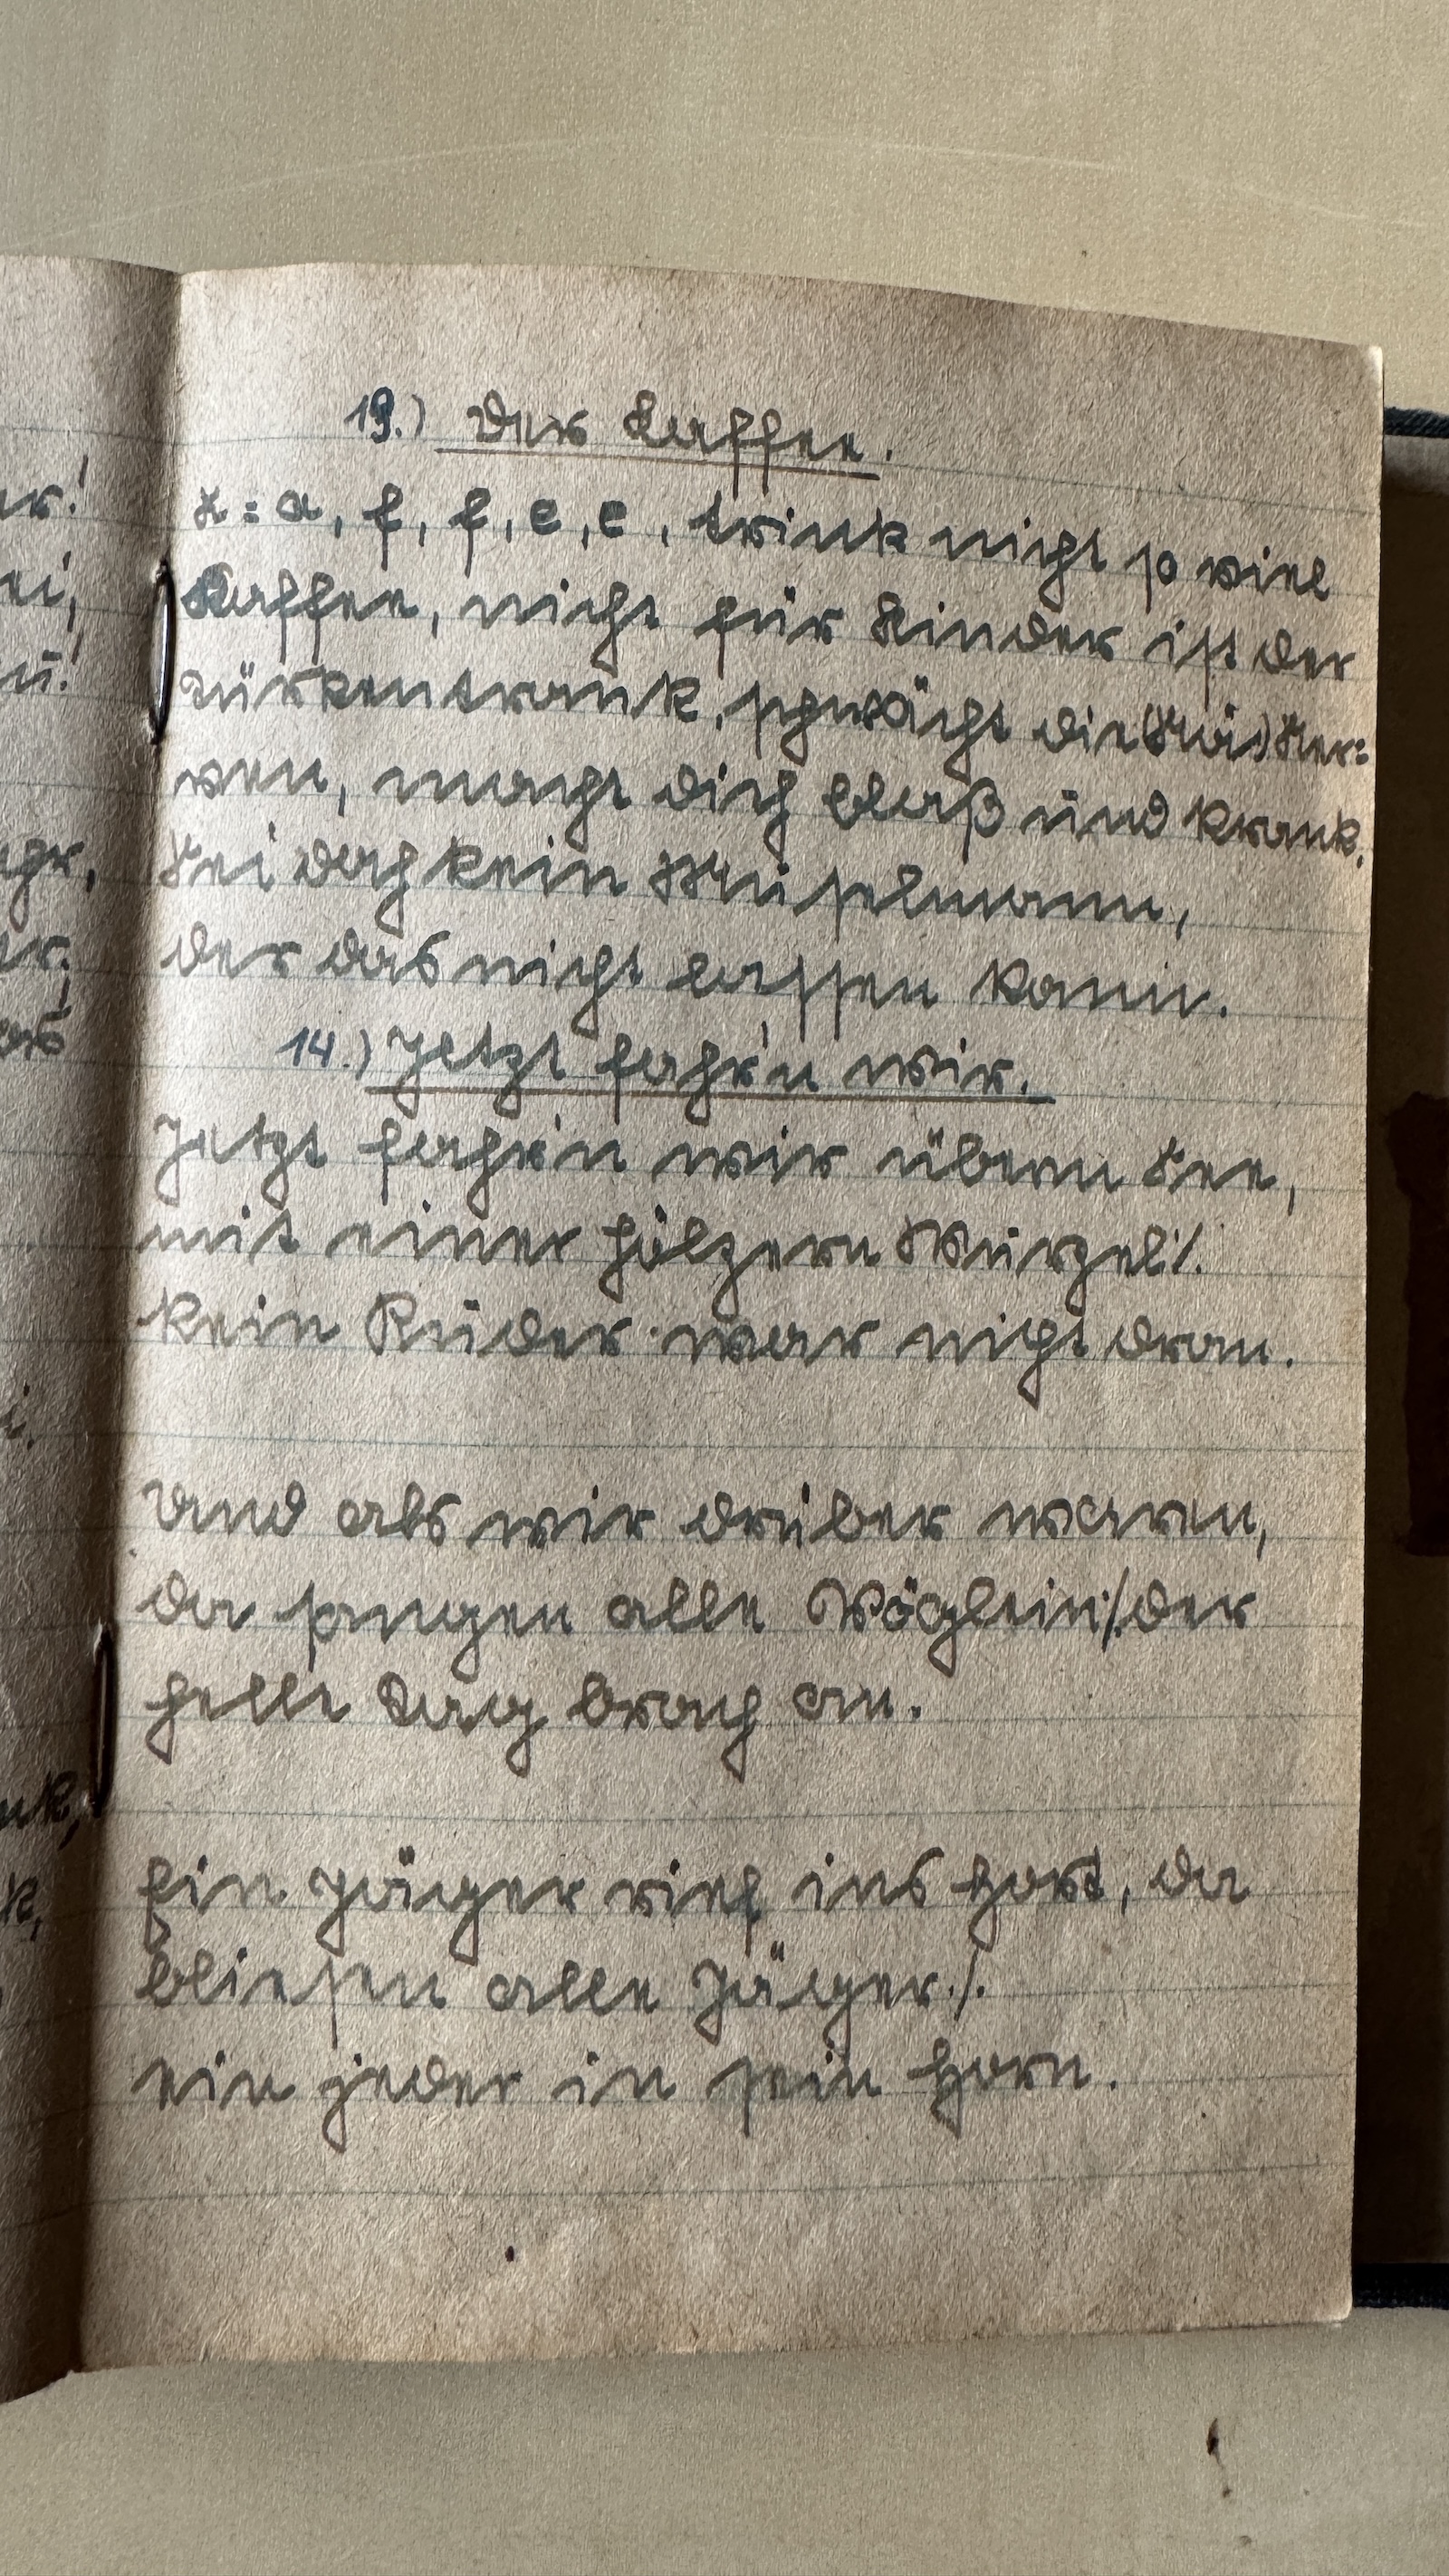 19.) Der Kaffee.
K = a, f, f, e, e, trink nicht so viel
Kaffee, nicht für Kinder ist der
Türkentrank, schwächt die Ner=
ven, macht dich blaß und krank.
Sei doch kein Muselmann,
der das nicht lassen kann.
14.) Jetzt fahr'n wir.
Jetzt fahr'n wir übern See,
mit einer hölzern Wurzel ./.
kein Ruder war nicht dran.
Und als wir drüber waren,
da sangen alle Vöglein ./. der
helle Tag brach an.
Ein Jäger rief ins Horn, da
bliesen alle Jäger ./.
ein jeder in sein Horn.
ar!
ei,
ü!
ahr,
er.
as
i.
nk,
k,